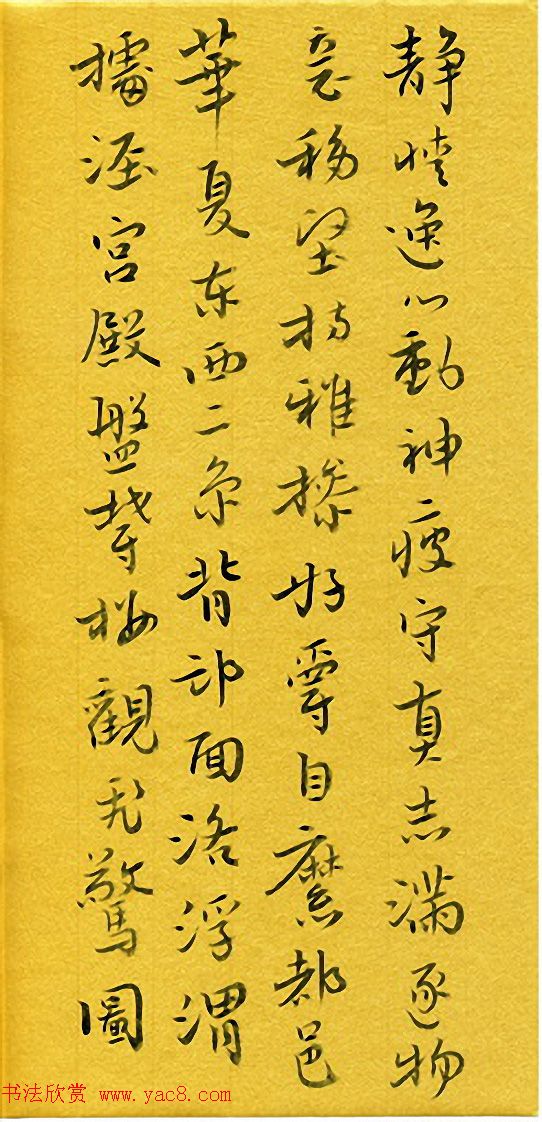 静情逸心動神疲守真志滿逐物
意移堅持雅操好爵自縻都邑
華夏東西二京背邙面洛浮渭
據涇宮殿盤鬱樓觀飛驚圖
书法欣赏 www.yac8.com